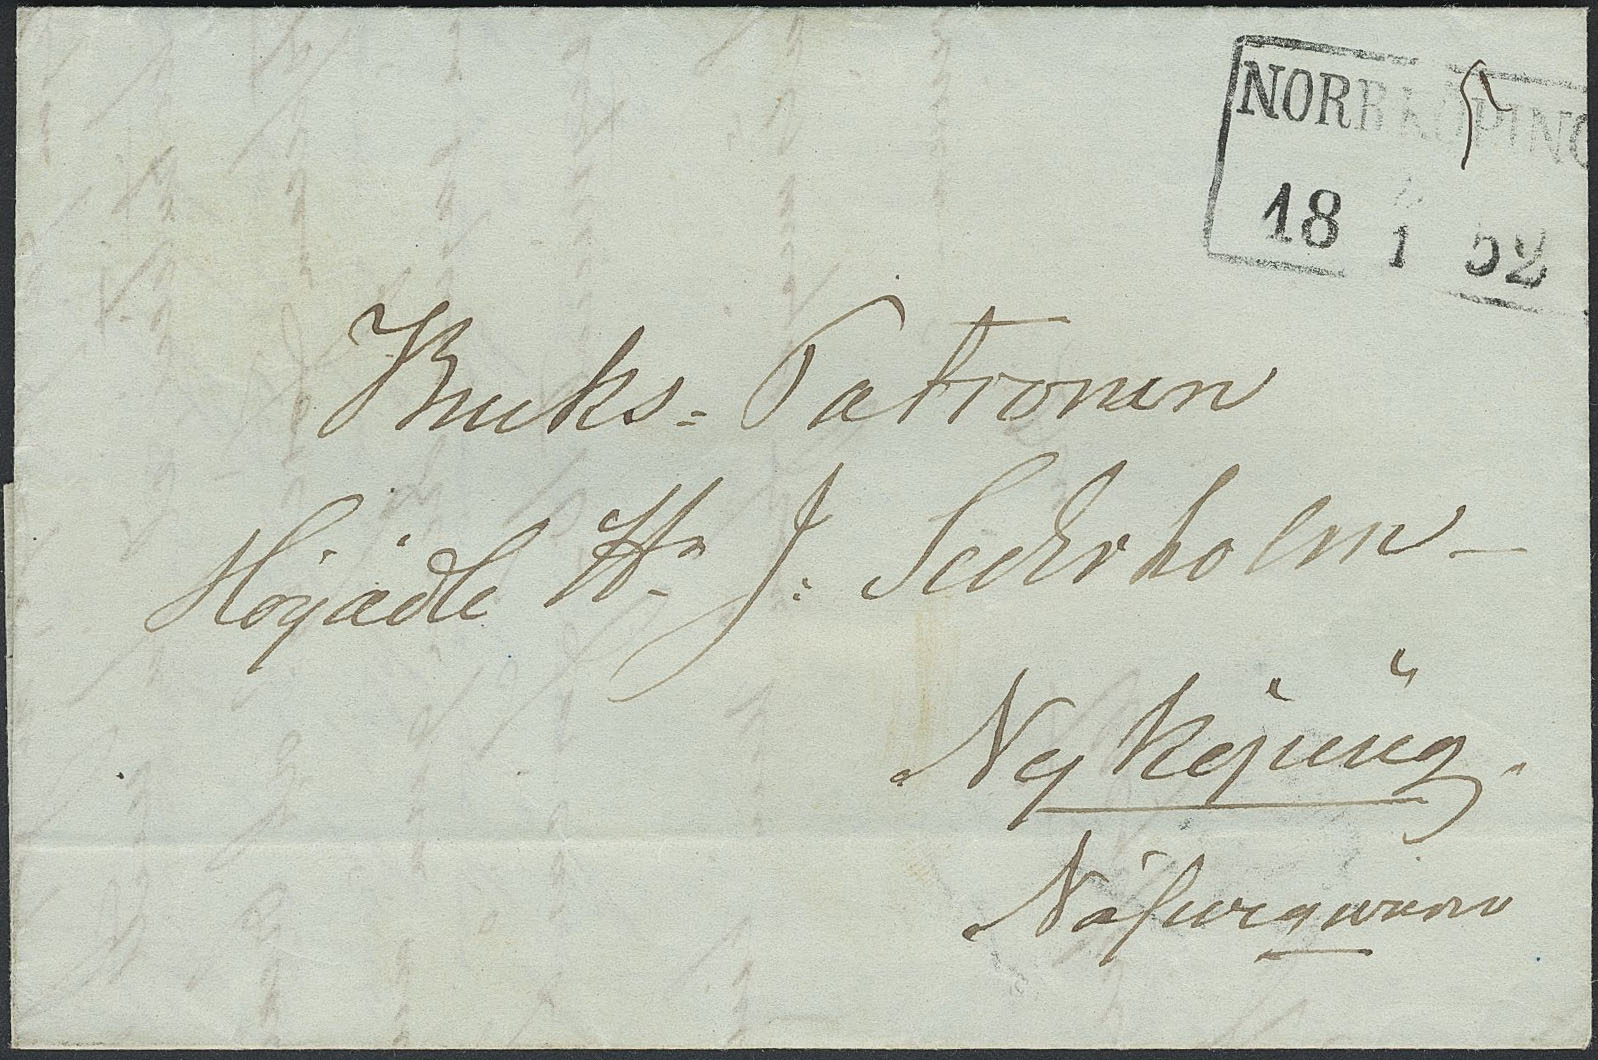 NORRKÖPING
18 1 52
Bruks-Patronen
Högädle Hr J. Sederholm
Nyköping.
Näfveqwarn